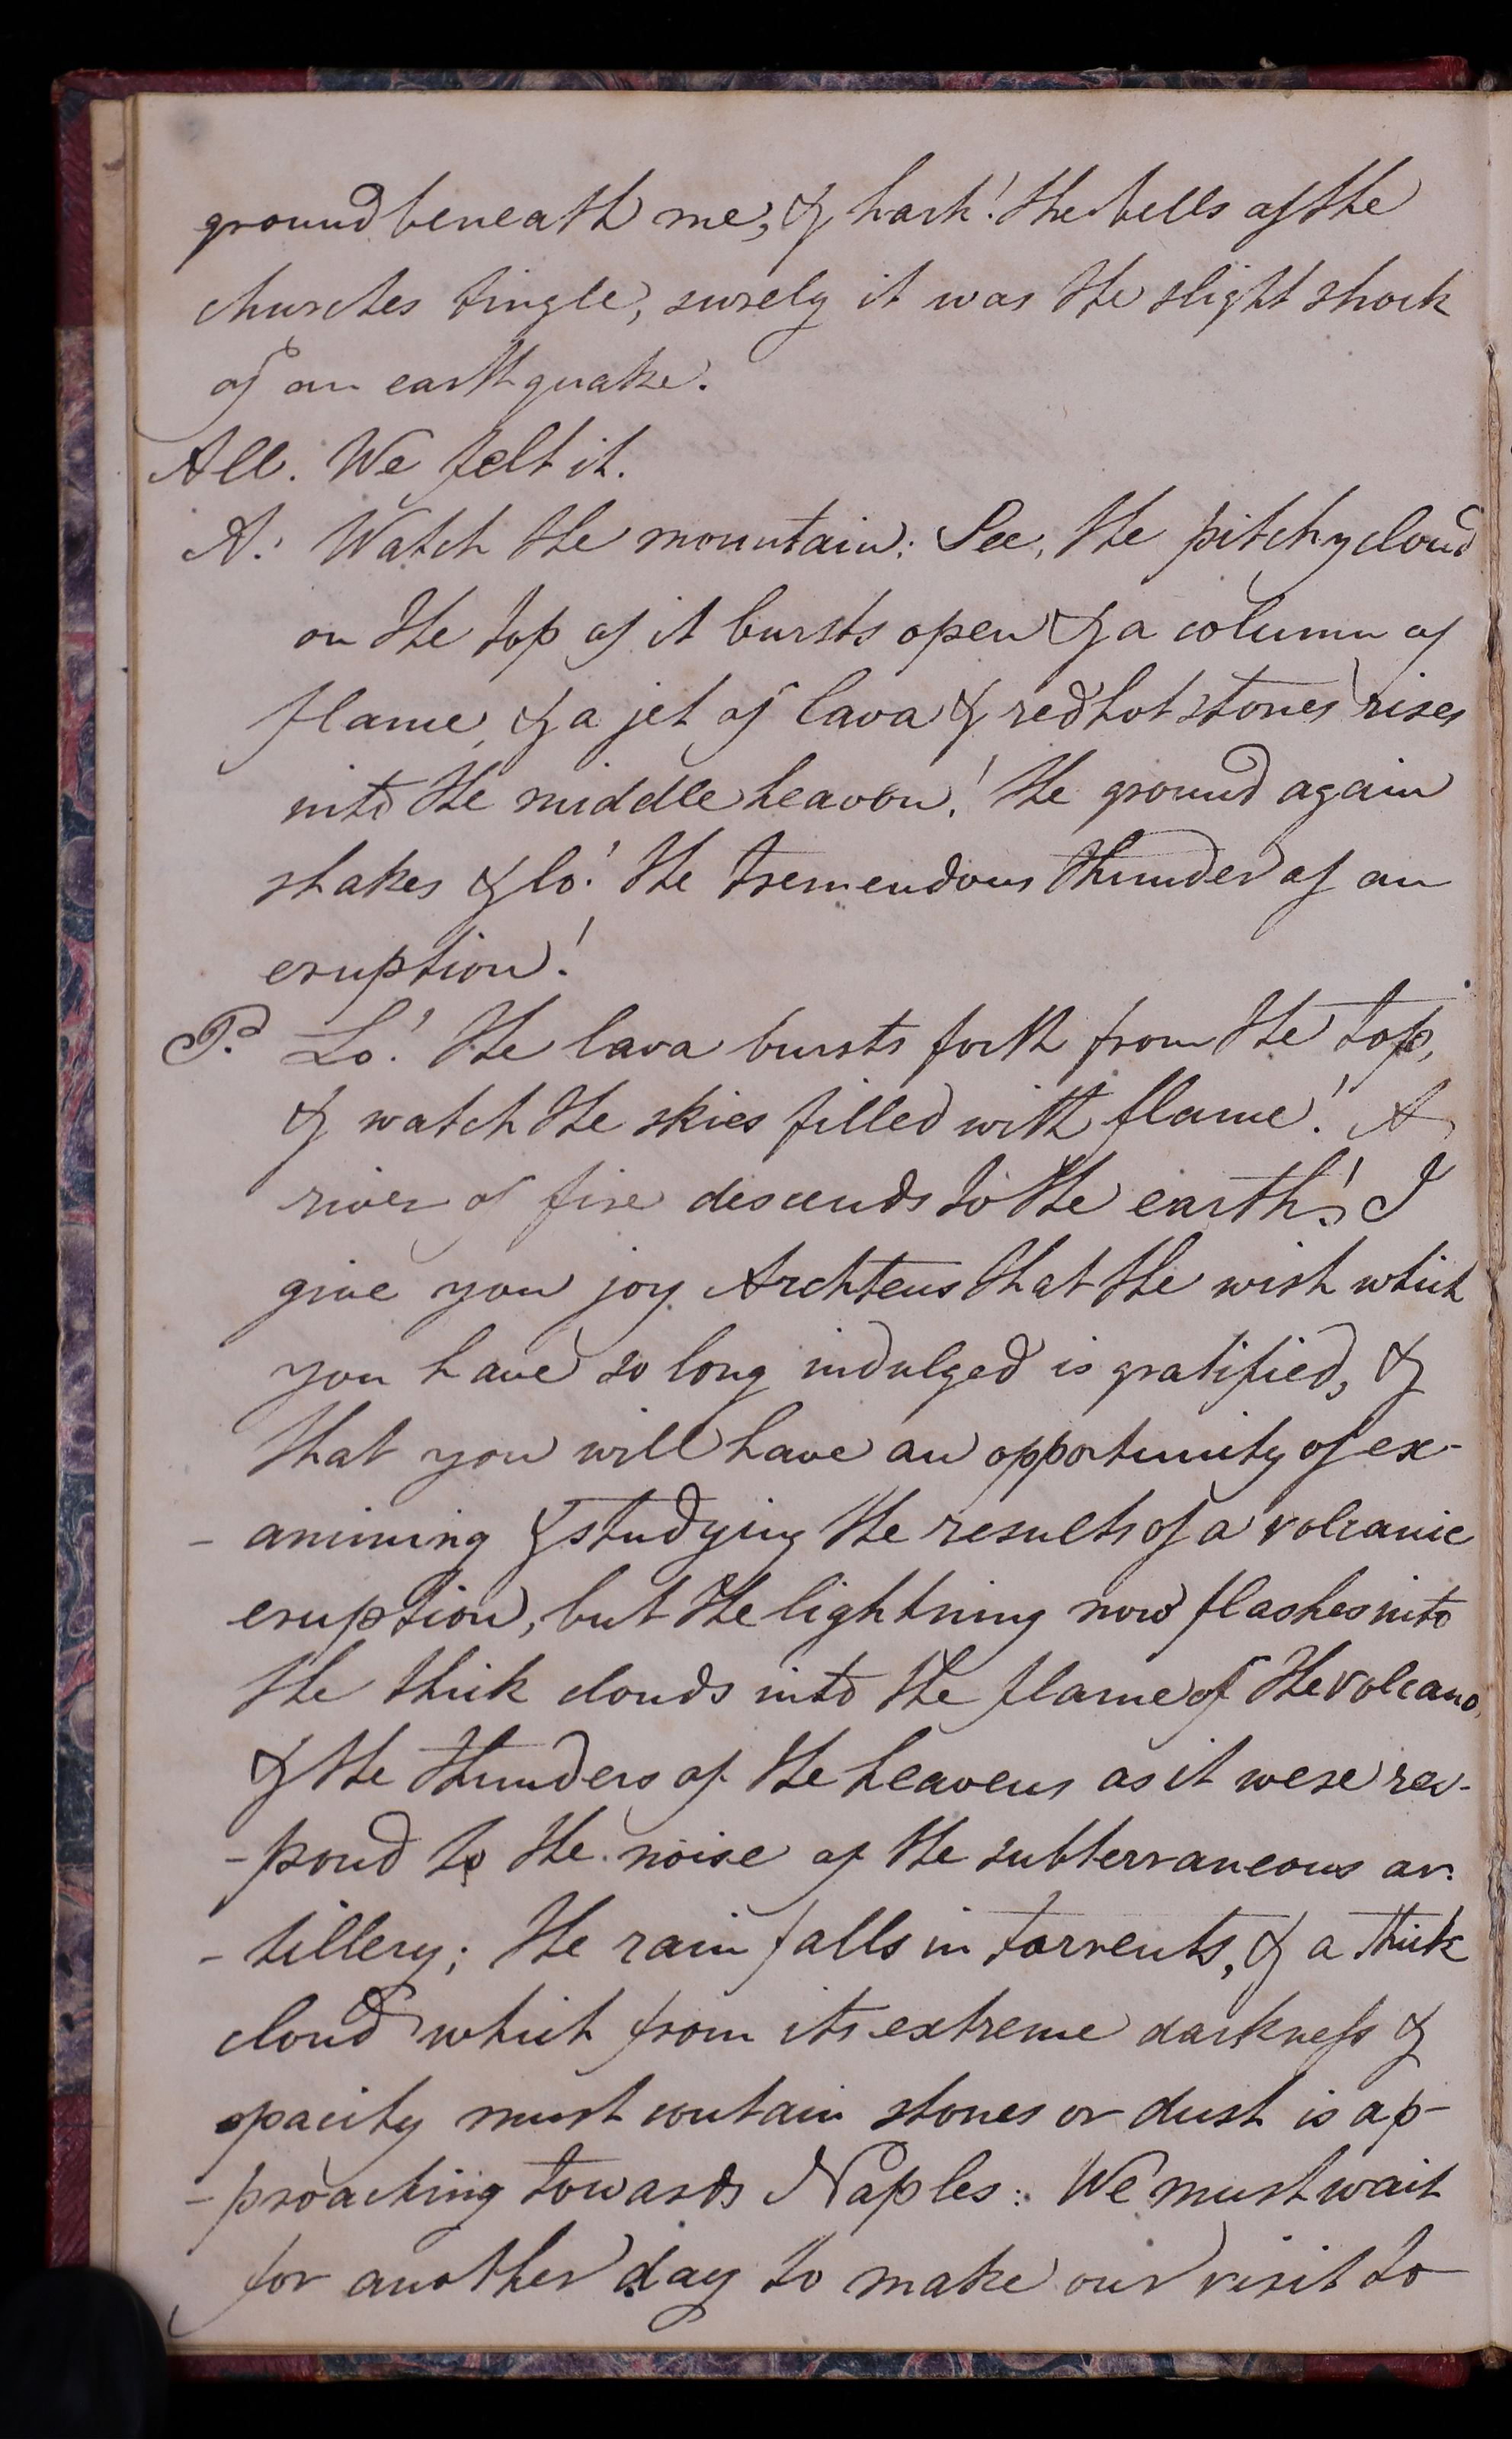 ground beneath me, & hark! the bells of the
churches tingle, surely it was the slight shock
of an earthquake.
All. We felt it.
A. Watch the mountain: See, the pitchy cloud
on the top of it bursts open & a column of
flame, & a jet of lava & red hot stones rises
into the middle heaven! the ground again
shakes & lo! the tremendous thunder of an
eruption!
P. Lo! the lava bursts forth from the top,
& watch the skies filled with flame! A
river of fire descends to the earth! I
give you joy Archteus that the wish which
you have so long indulged is gratified, &
that you will have an opportunity of ex-
- amining & studying the results of a volcanic
eruption, but the lightning now flashes into
the thick clouds into the flame of the volcano,
& the thunders of the heavens as it were res-
- pond to the noise of the subterraneous ar-
- tillery; the rain falls in torrents, & a thick
cloud which from its extreme darkness &
opacity must contain stones or dust is ap-
- proaching towards Naples: We must wait
for another day to make our visit to